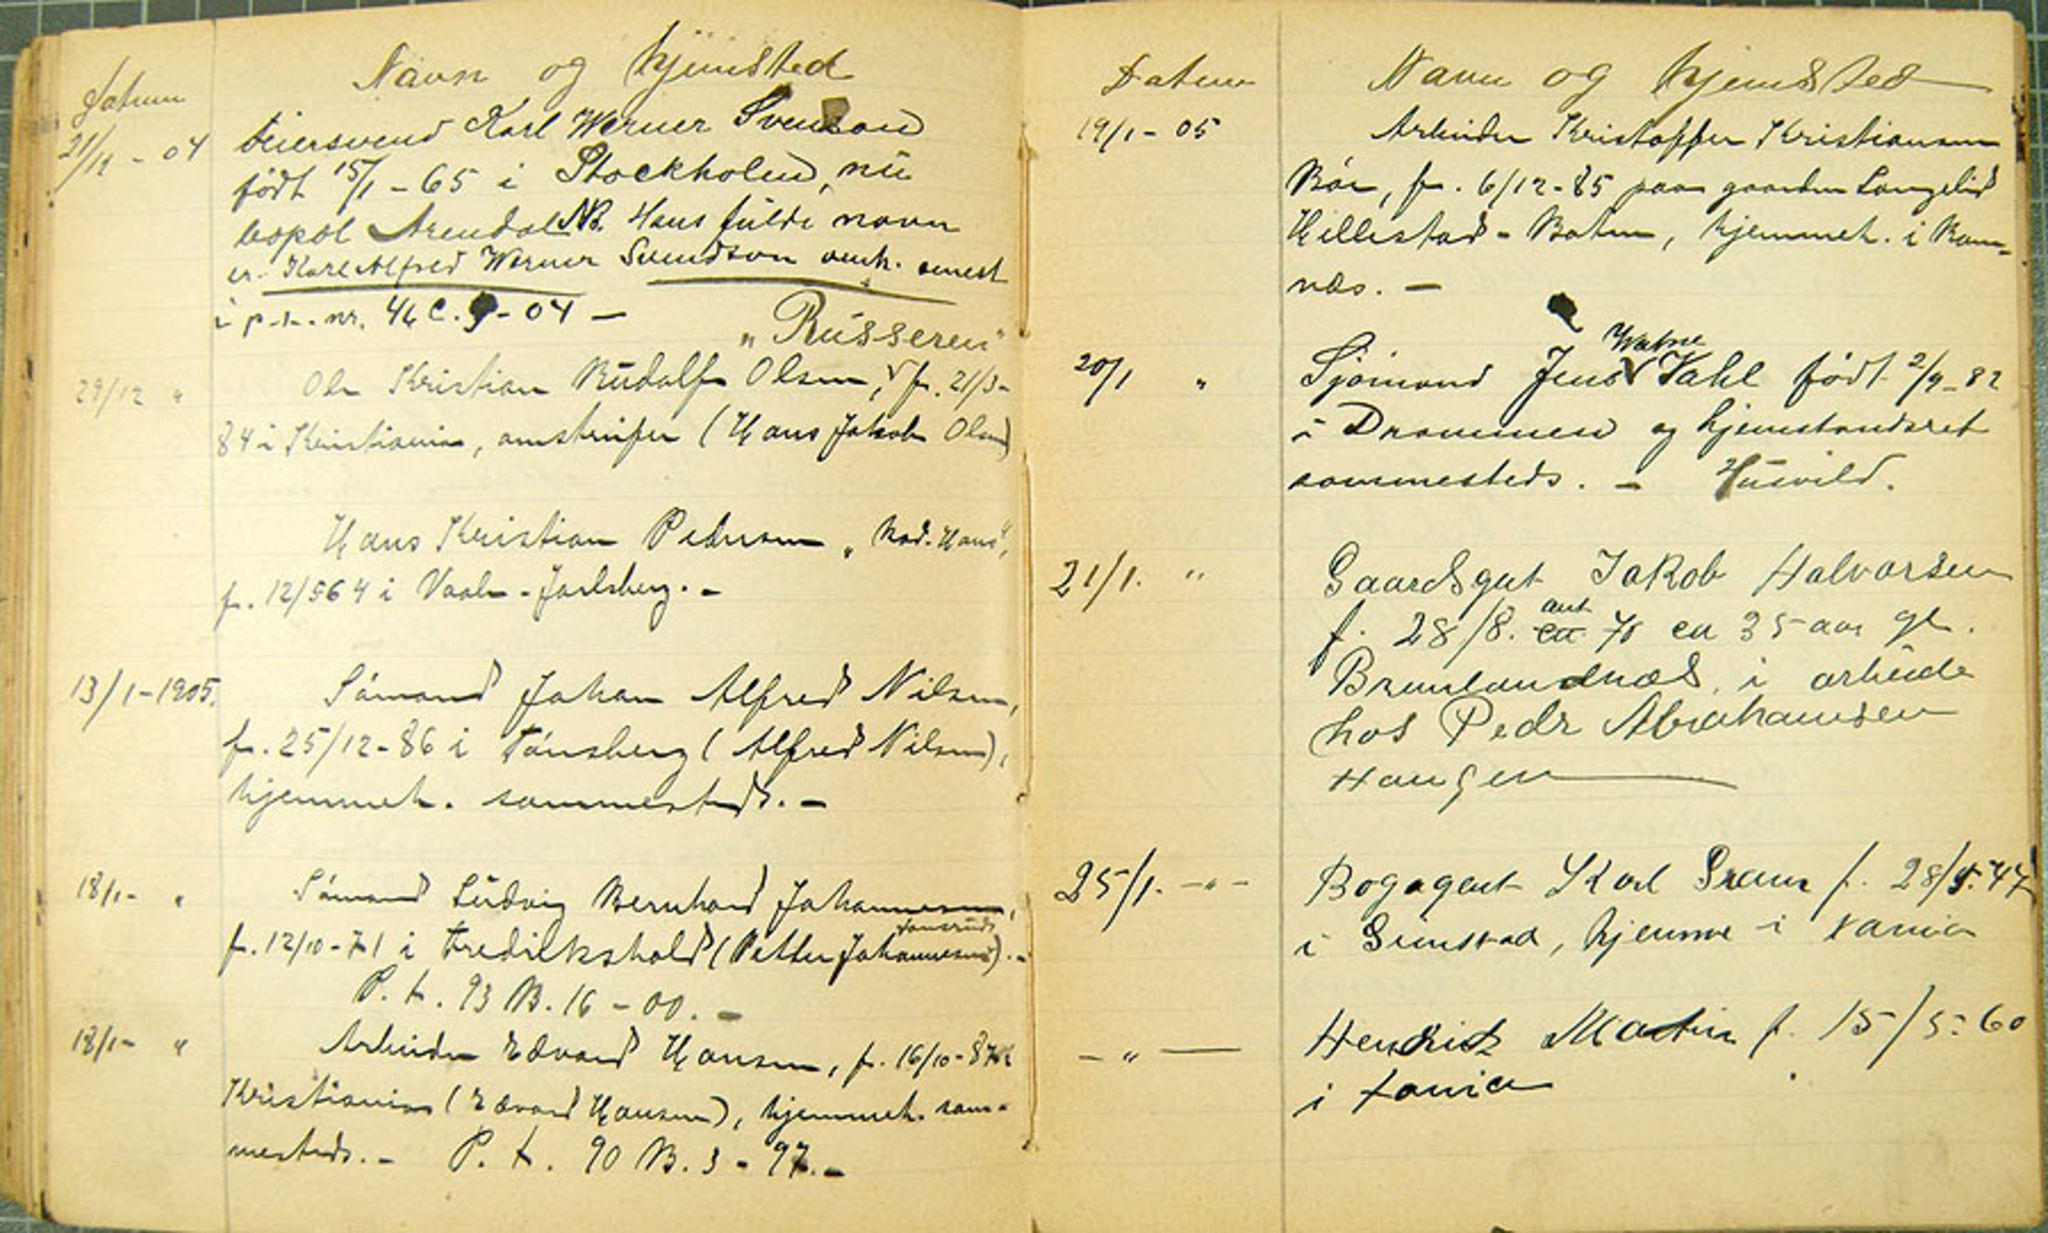 Datum Navn og hjemsted
21/12 - 04 Feiersvend Karl Werner Svenson
født 15/1 - 65 i Stockholm, nu
bopæl Arendal NB. Hans fulde navn
er. Karl Alfred Werner Svendson anh.
i p.t. nr. 46 C. 9 - 04 —
„Russeren"
29/12 " Ole Kristian Rudolf Olsen, f. 21/3 -
84 i Kristiania, omstreifer (Hans Jakob Olsen)
Hans Kristian Pedersen „Rød-Hans",
f. 12/5 64 i Vaale - Jarlsberg. -
13/1 - 1905. Sømand Johan Alfred Nilsen,
f. 25/12 - 86 i Tønsberg (Alfred Nilsen),
hjemmeh. sammesteds. -
18/1 - " Sømand Ludvig Bernhard Johannesen,
f. 12/10 - 71 i Fredrikshald (Petter Johannesen). -
P. t. 93 B. 16 - 00. -
18/1 - " Arbeider Edvard Hansen, f. 16/10 - 87 i
Kristiania (Edvard Hansen), hjemmeh. sam-
mesteds. - P. t. 90 B. 3 - 97. -
Datum Navn og hjemsted
19/1 - 05 Arbeider Kristoffer Kristiansen
Bøe, f. 6/12 - 85 paa gaarden Langelid
Hillestad - Botne, hjemmeh. i Ram-
næs. -
Watne
20/1 " Sjømand Jens Vahl født 2/9 - 82
i Drammen og hjemstandsret
sammesteds. - Husvild.
21/1. " Gaardsgut Jakob Halvorsen
ant
f. 28/8. ca. 70 ca 35 aar gl.
Brunlandnæs, i arbeide
hos Peder Abrahamsen
Haugen
25/1. - " - Bogagent Karl Gram f. 28/5. 47
i Grimstad, hjemme i Xania
- " - Hendrik Martin f. 15/5. 60
i Xania